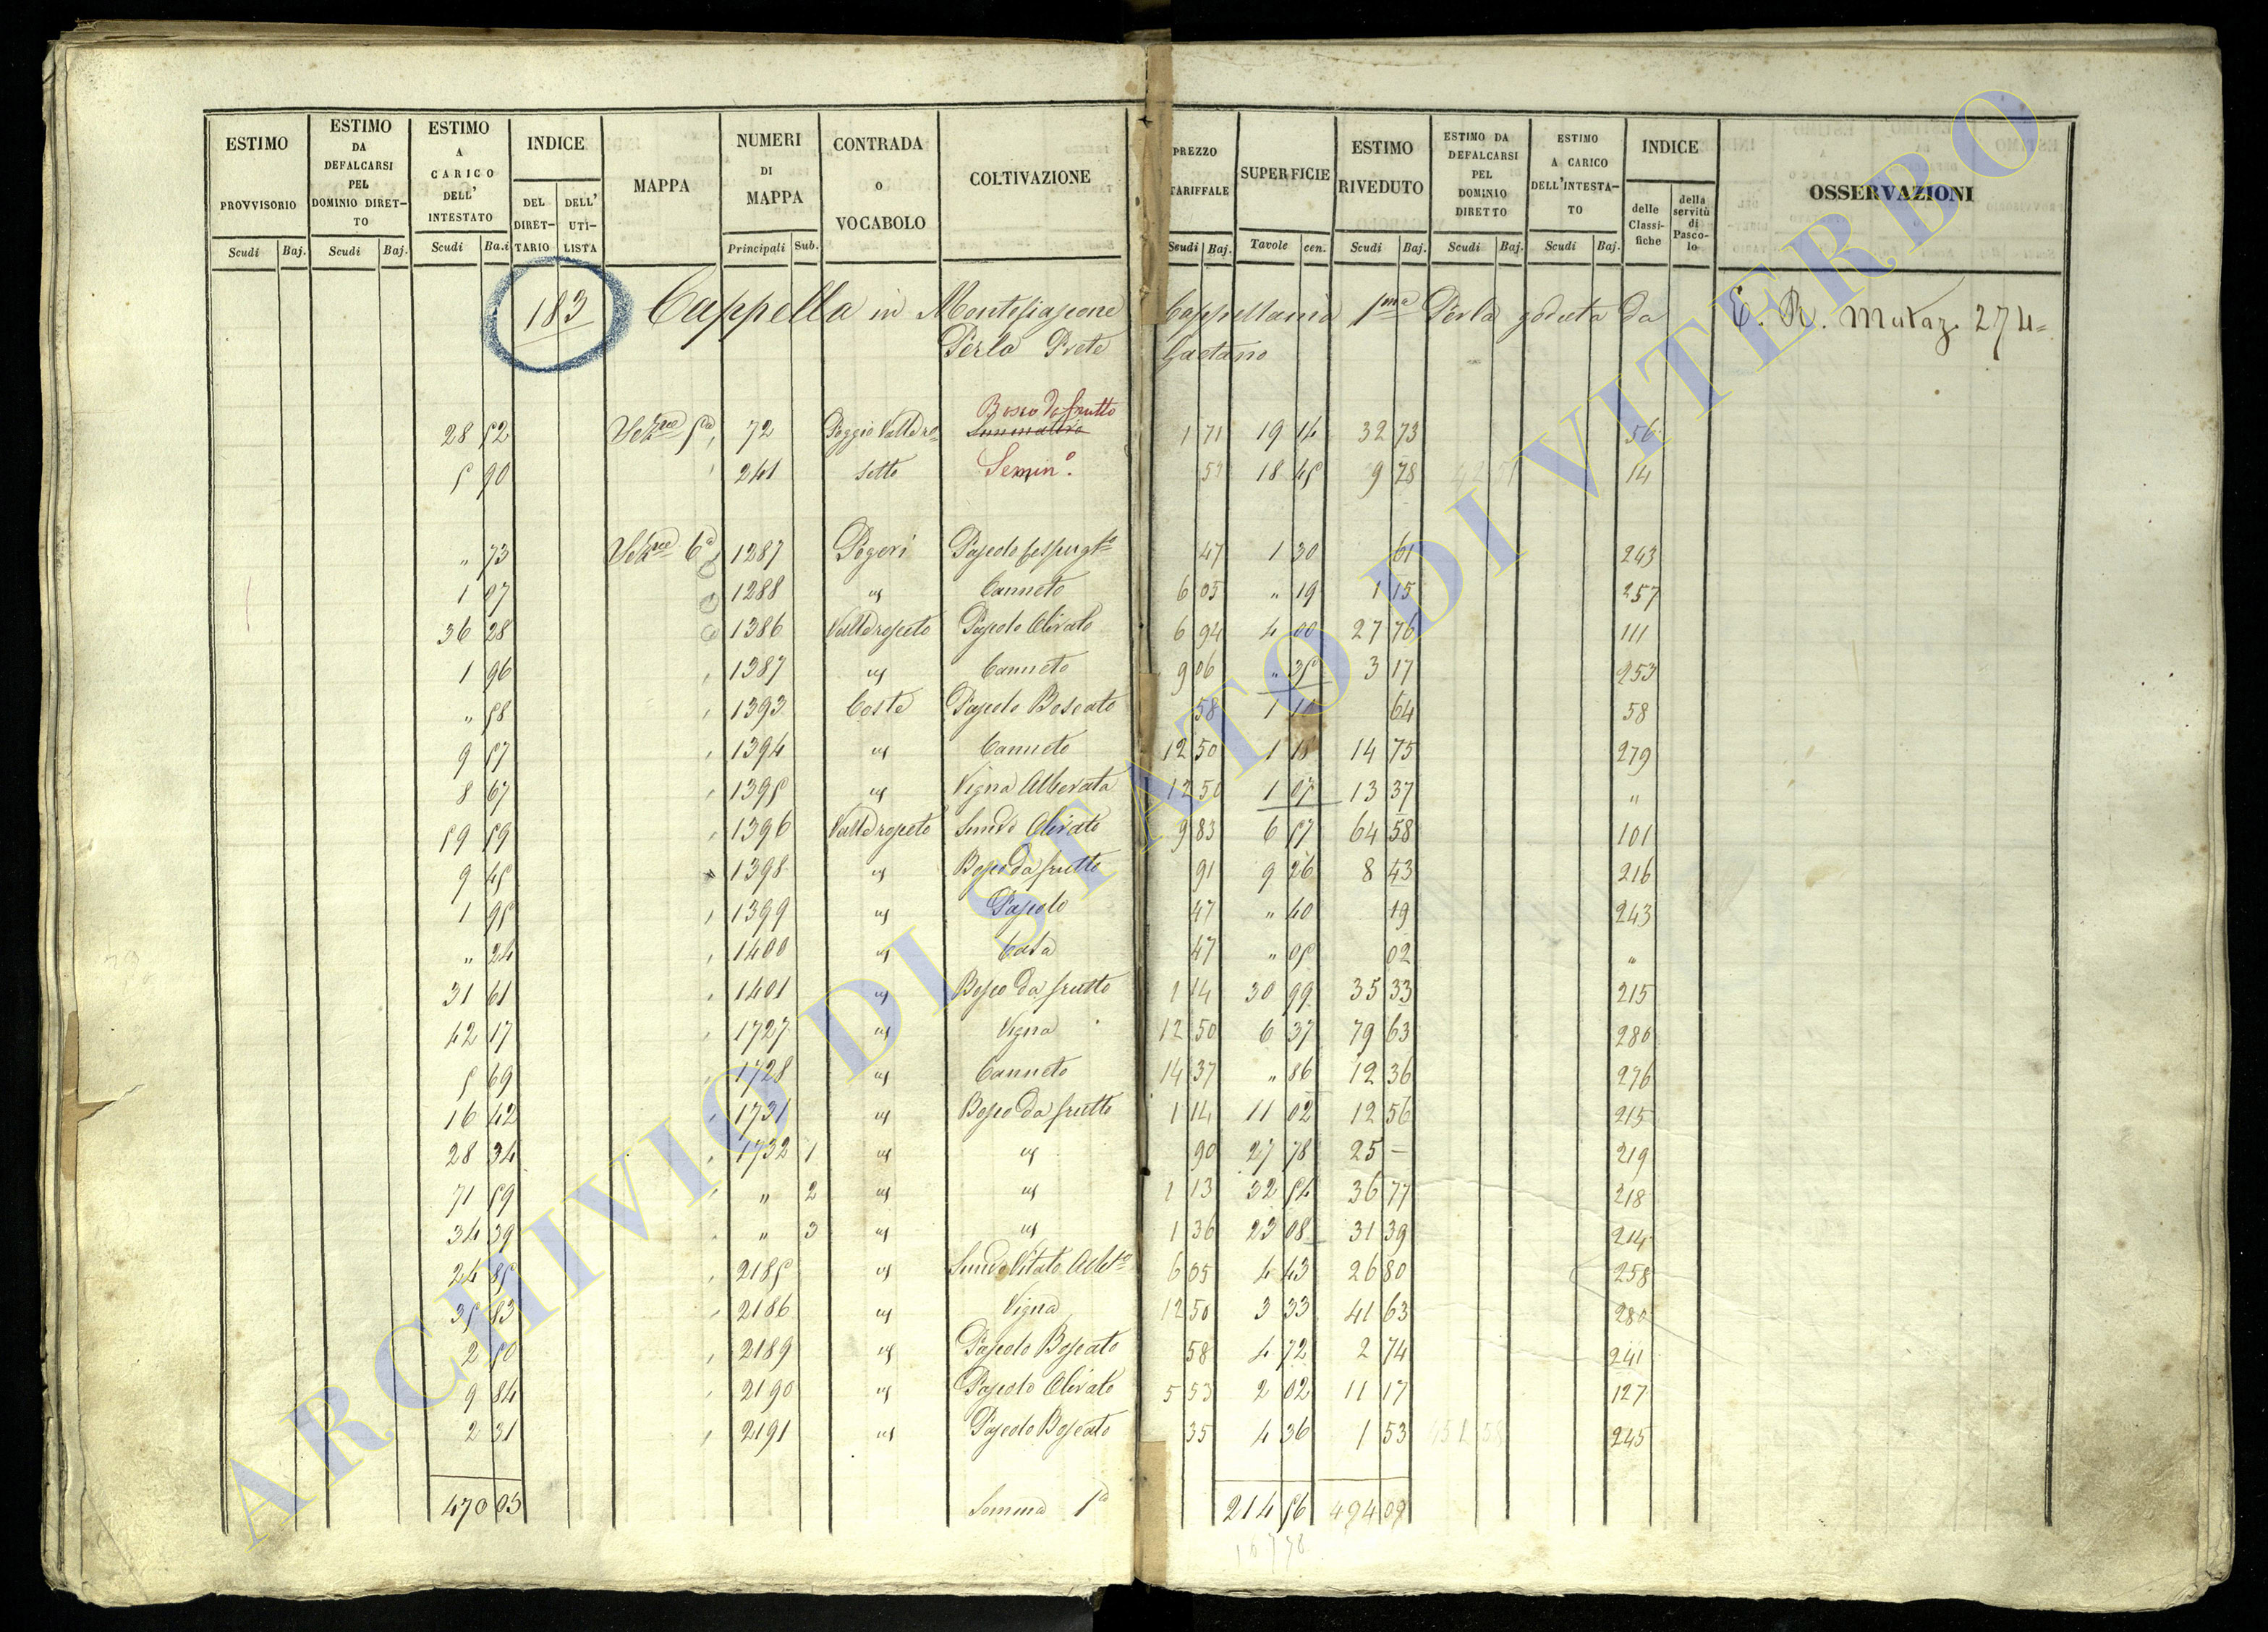 ESTIMO PROVVISORIO Scudi Baj. ESTIMO DA DEFALCARSI PEL DOMINIO DIRETTO Scudi Baj. ESTIMO A CARICO DELL' INTESTATO Scudi Ba.i INDICE DEL DIRETTARIO DELL' UTILISTA MAPPA NUMERI DI MAPPA Principali Sub. CONTRADA O VOCABOLO COLTIVAZIONE PREZZO TARIFFALE Scudi Baj. SUPERFICIE Tavole cen. ESTIMO RIVEDUTO Scudi Baj. ESTIMO DA DEFALCARSI PEL DOMINIO DIRETTO Scudi Baj. ESTIMO A CARICO DELL'INTESTATO Scudi Baj. INDICE delle Classifiche della servitù di Pascolo OSSERVAZIONI
183 Cappella in Montefiascone Cappellania 1ma Perla goduta da E. R. Mutaz. 274=
Perla Prete Gaetano
Bosco da frutto
28 52 Sezne 5a 72 Poggio Valldro- Seminativo 1 71 19 14 32 73 56
5 90 241 setto Semino. 53 18 45 9 78 14
" 73 Sezne 6a 1287 Pogeri Pascolo Cespugto 47 1 30 61 243
1 07 1288 id Canneto 6 05 " 19 1 15 257
36 28 1386 Valldroseto Pascolo Olivato 6 94 4 00 27 76 111
1 96 1387 id Canneto 9 06 " 35 3 17 253
" 58 1393 Coste Pascolo Boscato 58 1 64 58
9 57 1394 id Canneto 12 50 1 18 14 75 279
8 67 1395 id Vigna Alberata 12 50 1 07 13 37 "
59 59 1396 Valldroseto Semivo Olivato 9 83 6 57 64 58 101
9 45 1398 id Bosco da frutto 91 9 26 8 43 216
1 95 1399 id Pascolo 47 " 40 19 243
" 24 1400 id Casa 47 " 05 02 "
31 61 1401 id Bosco da frutto 1 14 30 99 35 33 215
42 17 1727 id Vigna 12 50 6 37 79 63 280
5 69 1728 id Canneto 14 37 " 86 12 36 276
16 42 1731 id Bosco da frutto 1 14 11 02 12 56 215
28 34 1732 1 id id 90 27 78 25 — 219
71 59 " 2 id id 1 13 32 54 36 77 218
34 39 " 3 id id 1 36 23 08 31 39 214
24 85 2185 id Semivo Vitato Albto 6 05 4 43 26 80 258
35 83 2186 id Vigna 12 50 3 33 41 63 280
2 50 2189 id Pascolo Boscato 58 4 72 2 74 241
9 84 2190 id Pascolo Olivato 5 53 2 02 11 17 127
2 31 2191 id Pascolo Boscato 35 4 36 1 53 245
470 03 Somma 1a 214 56 494 09
ARCHIVIO DI STATO DI VITERBO